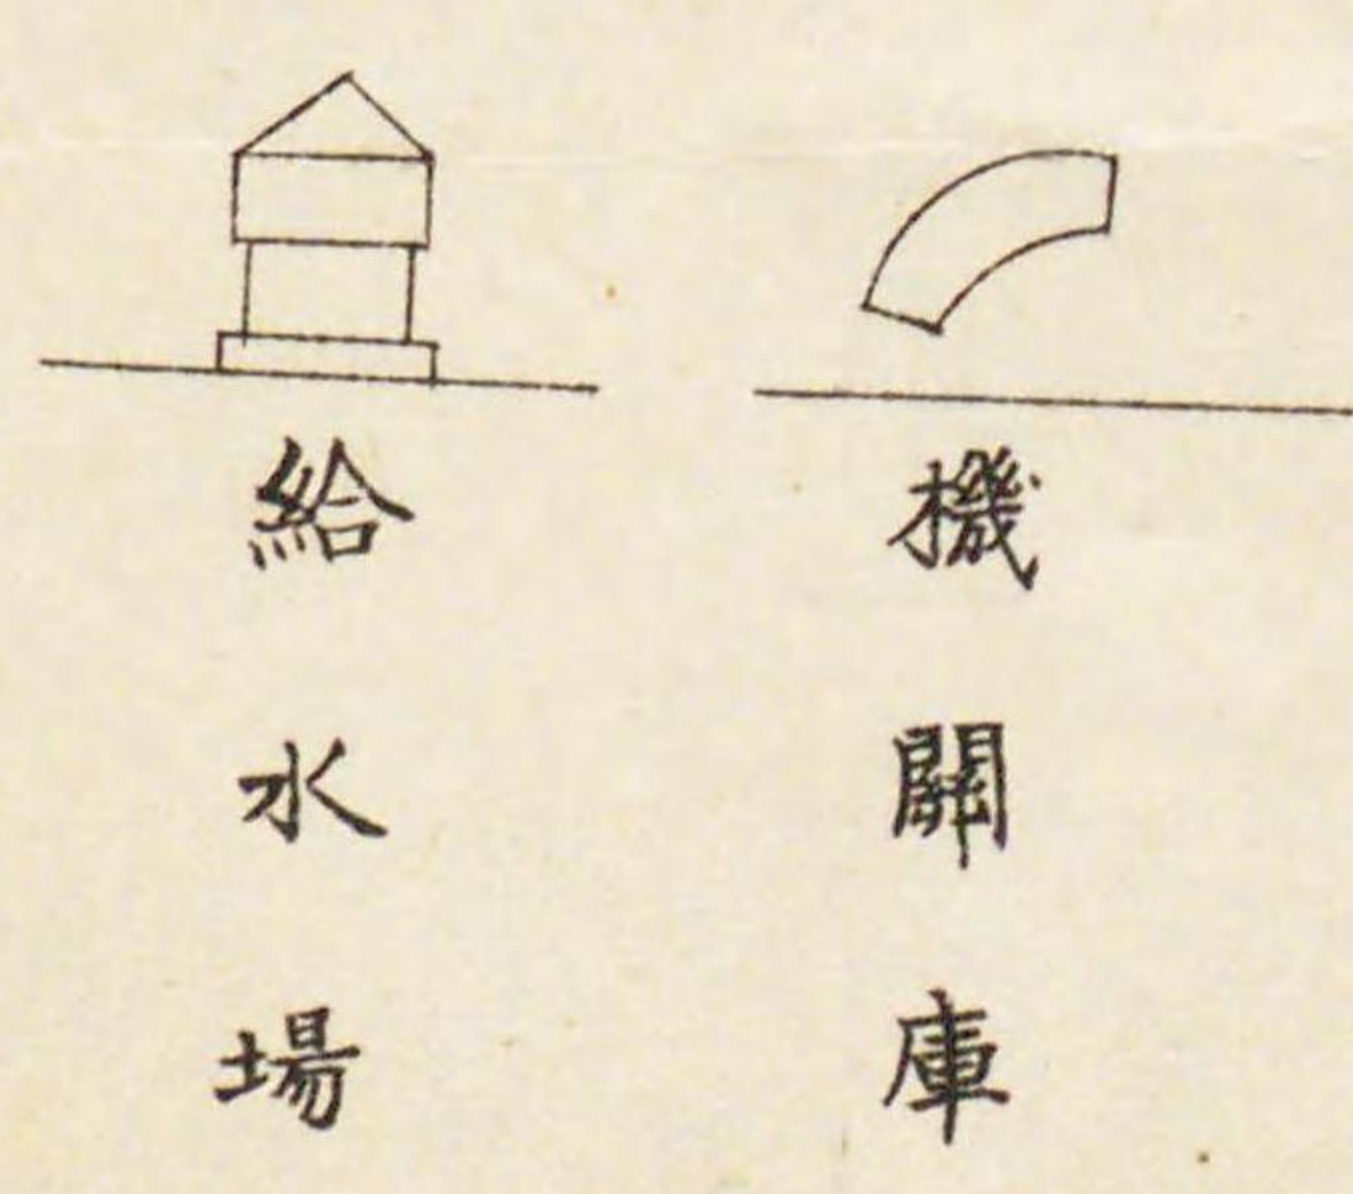 機關庫
給水場